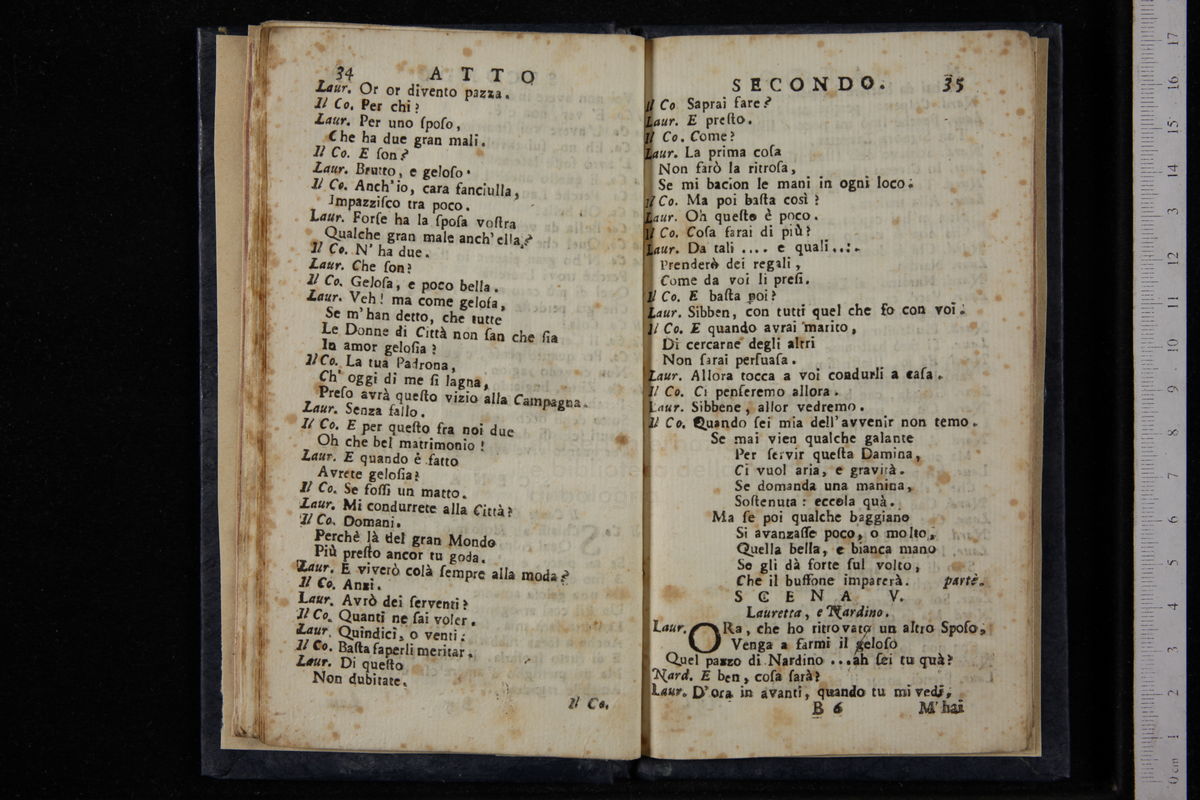 34 ATTO
Laur. Or or divento pazza.
Il Co. Per chi?
Laur. Per uno ſpoſo,
Che ha due gran mali.
Il Co. E ſon?
Laur. Brutto, e geloſo.
Il Co. Anch'io, cara fanciulla,
Impazziſco tra poco.
Laur. Forſe ha la ſpoſa voſtra
Qualche gran male anch'ella?
Il Co. N'ha due.
Laur. Che ſon?
Il Co. Geloſa, e poco bella.
Laur. Veh! ma come geloſa,
Se m'han detto, che tutte
Le Donne di Città non ſan che ſia
In amor geloſia?
Il Co. La tua Padrona,
Ch' oggi di me ſi lagna,
Preſo avrà queſto vizio alla Campagna.
Laur. Senza fallo.
Il Co. E per queſto fra noi due
Oh che bel matrimonio!
Laur. E quando è fatto
Avrete geloſia?
Il Co. Se foſſi un matto.
Laur. Mi condurrete alla Città?
Il Co. Domani.
Perchè là del gran Mondo
Più preſto ancor tu goda.
Laur. E viverò colà ſempre alla moda?
Il Co. Anzi.
Laur. Avrò dei ſerventi?
Il Co. Quanti ne ſai voler.
Laur. Quindici, o venti:
Il Co. Baſta ſaperli meritar.
Laur. Di queſto
Non dubitate.
Il Co.
SECONDO. 35
Il Co Saprai fare?
Laur. E preſto.
Il Co. Come?
Laur. La prima coſa
Non farò la ritroſa,
Se mi bacion le mani in ogni loco.
Il Co. Ma poi baſta così?
Laur. Oh queſto è poco.
Il Co. Coſa farai di più?
Laur. Da tali .... e quali....
Prenderò dei regali,
Come da voi li preſi.
Il Co. E baſta poi?
Laur. Sibben, con tutti quel che fo con voi.
Il Co. E quando avrai marito,
Di cercarne degli altri
Non ſarai perſuaſa.
Laur. Allora tocca a voi condurli a caſa.
Il Co. Ci penſeremo allora.
Laur. Sibbene, allor vedremo.
Il Co. Quando ſei mia dell'avvenir non temo.
Se mai vien qualche galante
Per ſervir queſta Damina,
Ci vuol aria, e gravità.
Se domanda una manina,
Soſtenuta: eccola quà.
Ma ſe poi qualche baggiano
Si avanzaſſe poco, o molto,
Quella bella, e bianca mano
Se gli dà forte ſul volto,
Che il buffone imparerà. partè.
SCENA V.
Lauretta, e Nardino.
Laur. ORa, che ho ritrovato un altro Spoſo,
Venga a farmi il geloſo
Quel pazzo di Nardino ...ah ſei tu quà?
Nard. E ben, coſa ſarà?
Laur. D'ora in avanti, quando tu mi vedi,
B 6 M'hai